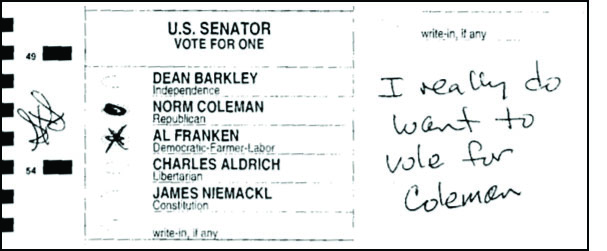 U.S. SENATOR
VOTE FOR ONE
49
DEAN BARKLEY
Independence
NORM COLEMAN
Republican
AL FRANKEN
Democratic-Farmer-Labor
54
CHARLES ALDRICH
Libertarian
JAMES NIEMACKL
Constitution
write-in, if any
write-in, if any
I really do
want to
vote for
Coleman